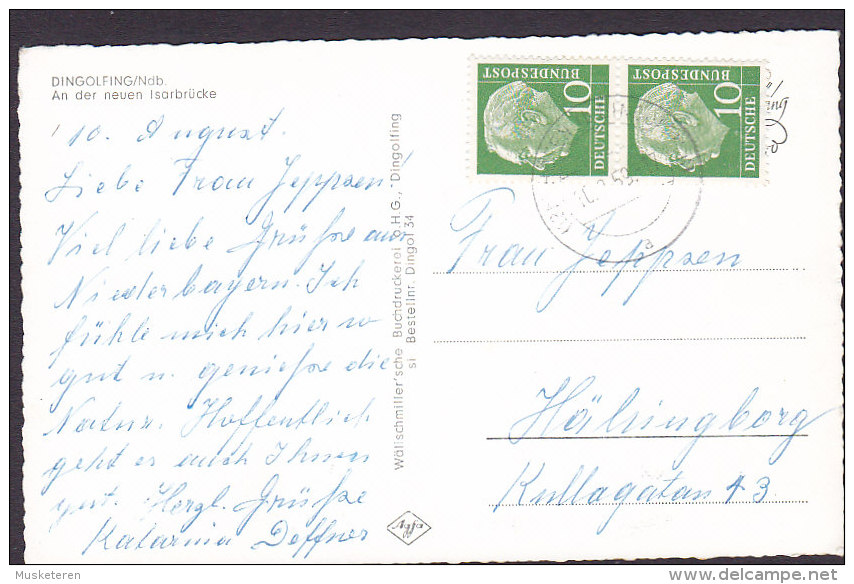 DINGOLFING/Ndb.
An der neuen Isarbrücke
10. August.
Liebe Frau Jeppsen!
Viel liebe Grüße aus
Niederbayern. Ich
fühle mich hier so
gut u. genieße die
Natur. Hoffentlich
geht es auch Ihnen
gut. Herzl. Grüße
Katarina Deffner
Wällischmiller'sche Buchdruckerei o.H.G., Dingolfing
si Bestellnr. Dingol 34
Agfa
10
DEUTSCHE
BUNDESPOST
10
DEUTSCHE
BUNDESPOST
Frau Jeppsen
Hälsingborg
Kullagatan 43
Musketeren
delcampe.net